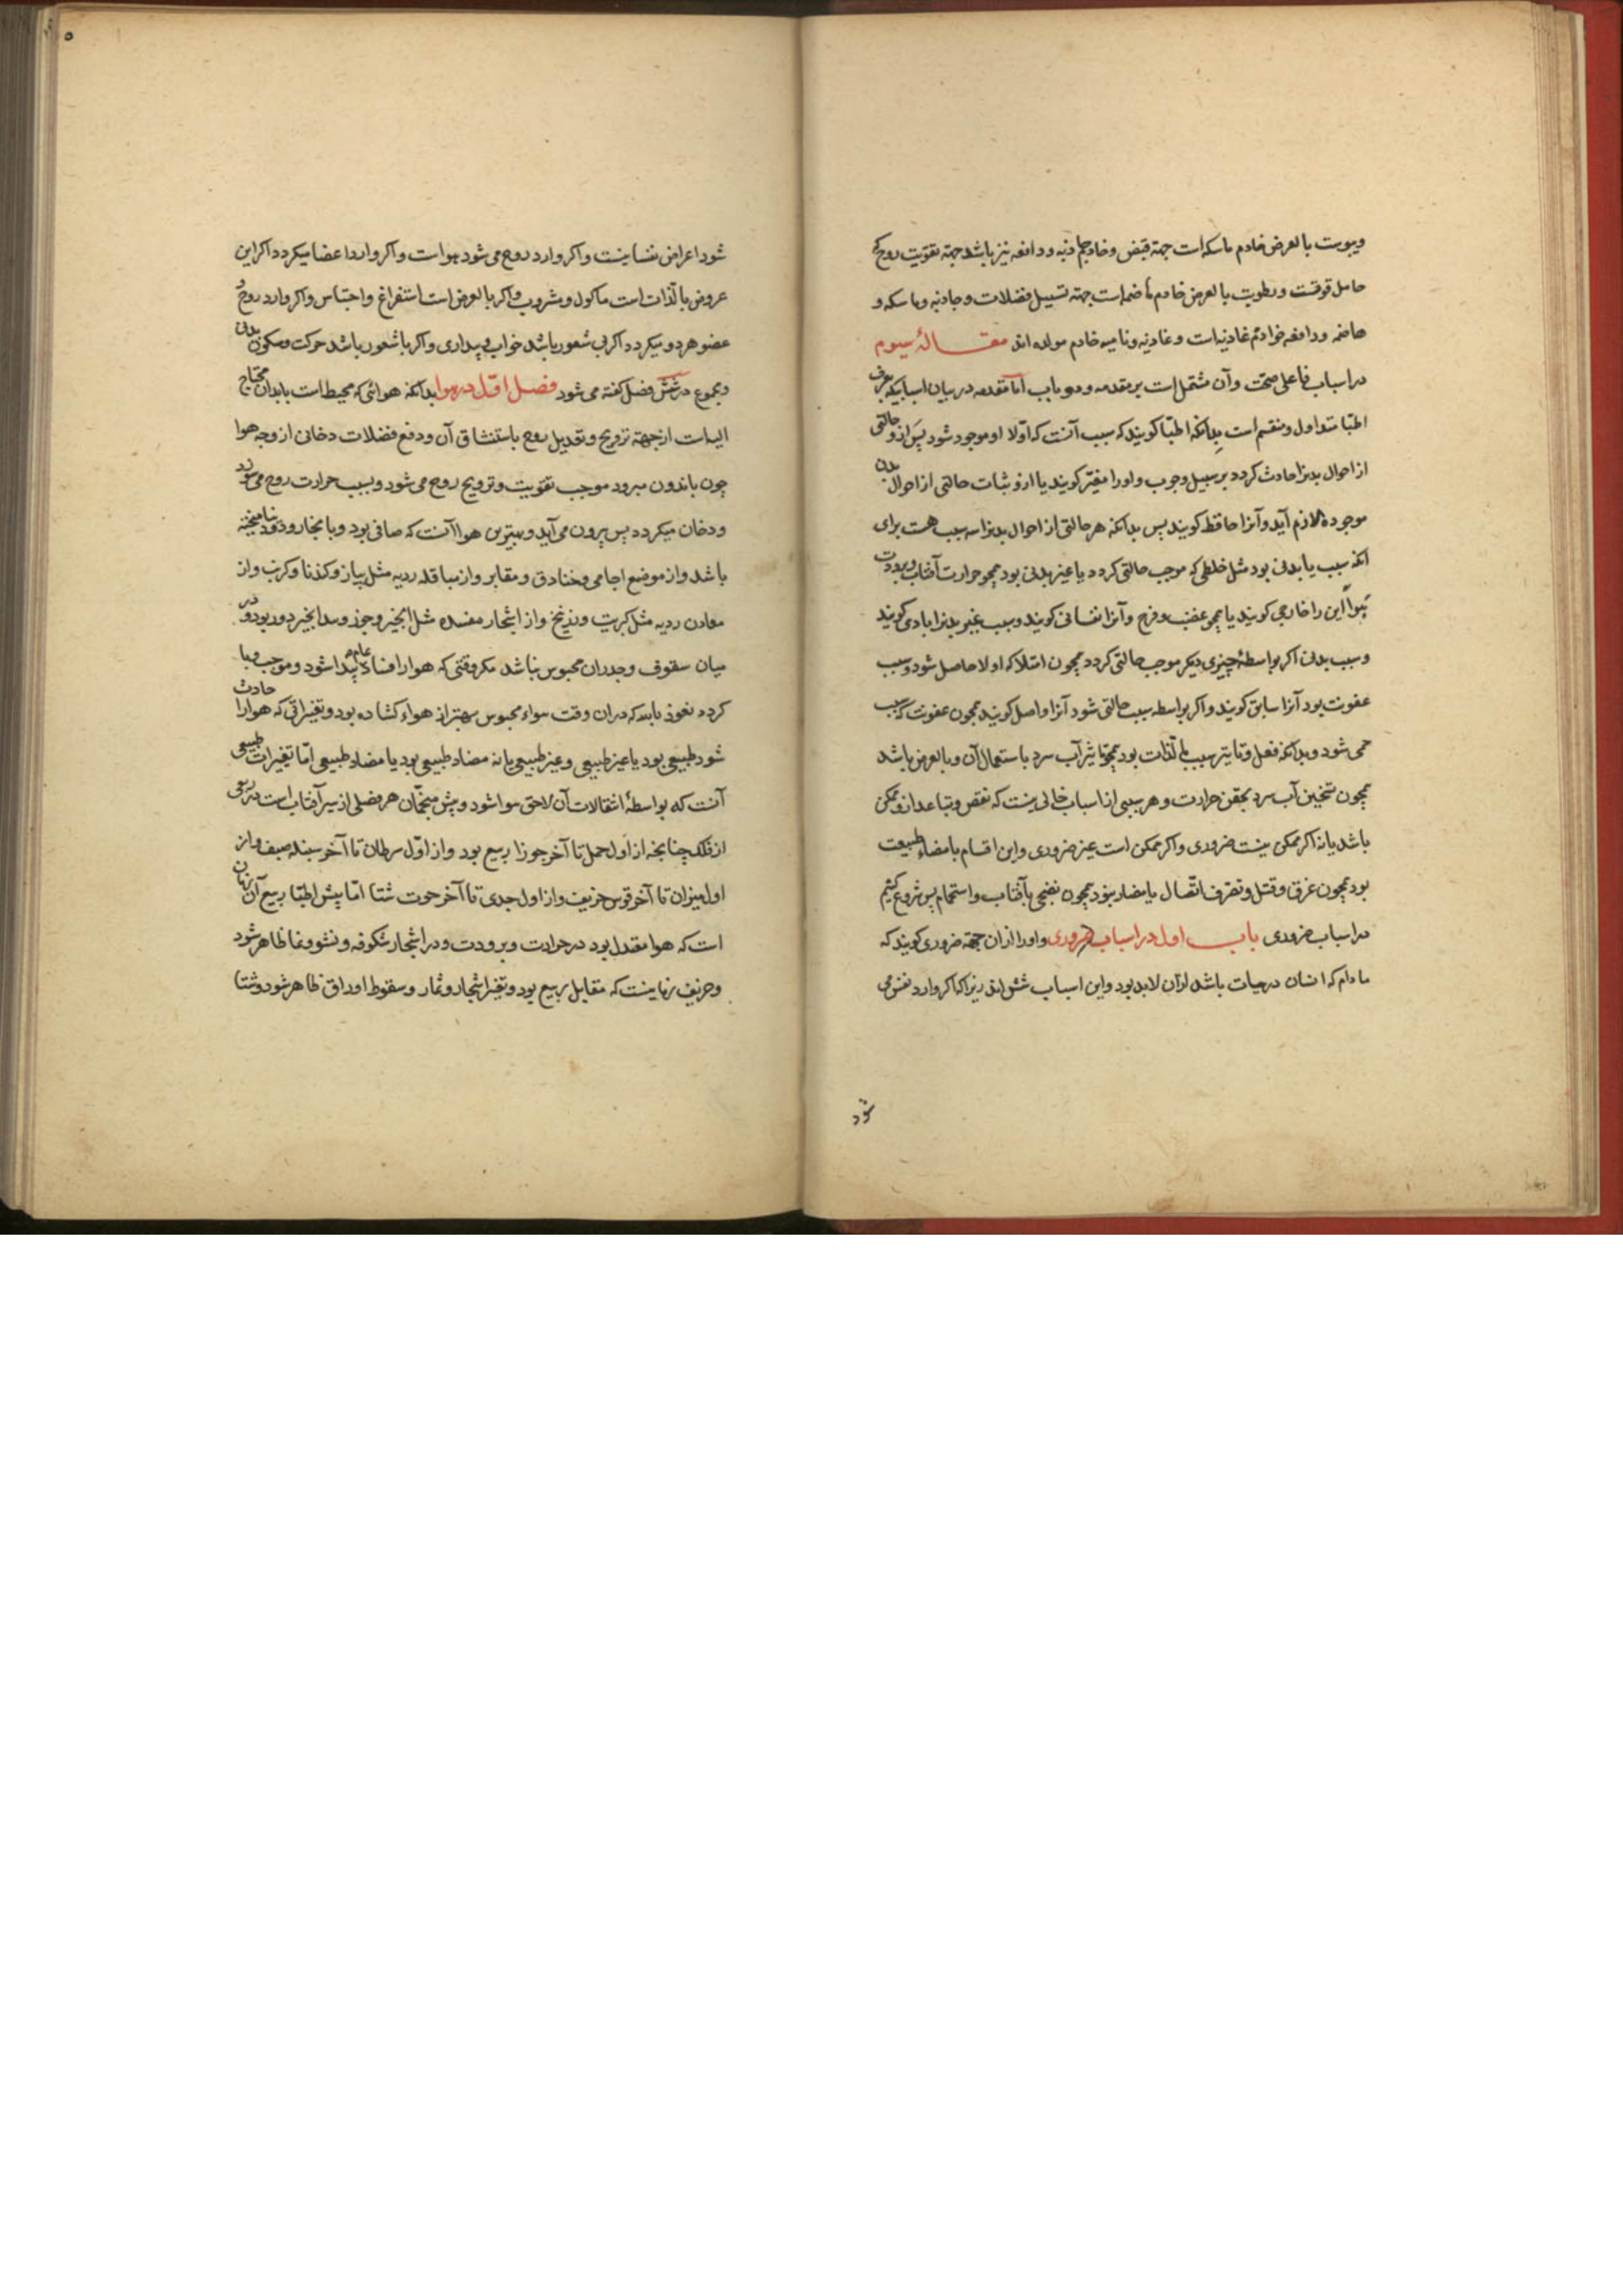 ویبوست بالعرض خادم ماسکه است جهة قبض و خادم جاذبه و دافعه نیز باشد جهة تقویت روح که
حامل قوتست و رطوبت بالعرض خادم هاضمه است جهة تسییل فضلات و جاذبه و ماسکه و
هاضمه و دافعه خوادم غاذیه است و غاذیه و نامیه خادم مولده اند مقالهٔ سیوم
در اسباب فاعلی صحّت و آن مشتمل است بر مقدمه و دو باب امّا مقدمه در بیان اسبابیکه بعرف
اطبّا متداول و منقسم است بدانکه اطبّا کویند که سبب آنست که اوّلا او موجود شود پس از و حالتی
از احوال بدنرا حادث کردد بر سبیل وجوب و اورا مغیّر کویند یا ازو ثبات حالتی از احوال بدن
موجوده لازم آید و آنرا حافظ کویند پس بدانکه هر حالتی از احوال بدنرا سه سبب هست برای
انکه سبب یا بدنی بود مثل خلطی که موجب حالتی کردد یا غیر بدنی بود همچو حرارت آفتاب و برودت
هوا این را خارجی کویند یا همچو غضب و فرح و آنرا نفسانی کویند و سبب غیر بدنرا بادی کویند
و سبب بدنی اکر بواسطهٔ چیزی دیکر موجب حالتی کردد همچون امتلا که اولا حاصل شود و سبب
عفونت بود آنرا سابق کویند و اکر بواسطه سبب حالتی شود آنرا واصل کویند همچون عفونت که سبب
حمی شود و بدانکه فعل و تاثیر سبب بالذات بود همچو تاثیر آب سرد باستعمال آن و بالعرض باشد
همچون تسخین آب سرد بحقن حرارت و هر سببی از اسباب خالی نیست که نقص و تباعد ازو ممکن
باشد یا نه اکر ممکن نیست ضروری و اکر ممکن است غیر ضروری و این اقسام یا مضاد طبیعت
بود همچون غرق و قتل و تفرق اتّصال یا مضاد نبود همچون تضحی بآفتاب و استحمام پس شروع کنیم
در اسباب ضروری باب اول در اسباب ضروری و اورا از ان جهة ضروری کویند که
مادام که انسان در حیات باشد از ان لابد بود و این اسباب شش اند زیرا که اکر وارد نفس می
شود
۵
شود اعراض نفسانیست و اکر وارد روح می شود هواست و اکر وارد اعضا میکردد اکر این
عروض بالذات است ماکول و مشروب و اکر بالعرض است استفراغ و احتباس و اکر وارد روح و
عضو هردو میکردد اکر بی شعور باشد خواب و بیداری و اکر با شعور باشد حرکت و سکون بدنی
و مجموع در شش فصل کفته می شود فصل اوّل در هوا بدانکه هوائی که محیط است بابدان محتاج
الیه است از جهة ترویح و تعدیل روح باستنشاق آن و دفع فضلات دخانی ازو چه هوا
چون باندرون میرود موجب تقویت و ترویح روح می شود و بسبب حرارت روح می سوزد
و دخان میکردد پس بیرون می آید و بهترین هوا آنست که صافی بود و با بخار و دود نیامیخته
باشد و از موضع اجامی و خنادق و مقابر و از مباقله ردیه مثل پیاز و کندنا و کرنب و از
معادن ردیه مثل کبریت و زرنیخ و از اشجار مفسده مثل انجیر و جوز و بید انجیر دور بود و در
میان سقوف و جدران محبوس نباشد مکر وقتی که هوارا فساد عام پیدا شود و موجب وبا
کردد نعوذ بالله که در ان وقت هواء محبوس بهتر از هواء کشاده بود و تغیراتی که هوارا حادث
شود طبیعی بود یا غیر طبیعی و غیر طبیعی یا نه مضاد طبیعی بود یا مضاد طبیعی امّا تغیرات طبیعی
آنست که بواسطهٔ انتقالات آن لاحق هوا شود و پیش منجّمان هر فصلی از سیر آفتاب است در ربعی
از فلک چنانچه از اول حمل تا آخر جوزا ربیع بود و از اوّل سرطان تا آخر سنبله صیف و از
اول میزان تا آخر قوس خریف و از اول جدی تا آخر حوت شتا امّا پیش اطبّا ربیع آن زمان
است که هوا معتدل بود در حرارت و برودت و در اشجار شکوفه و نشو و نما ظاهر شود
و خریف زمانیست که مقابل ربیع بود و تغیر اشجار و ثمار و سقوط اوراق ظاهر شود و شتا